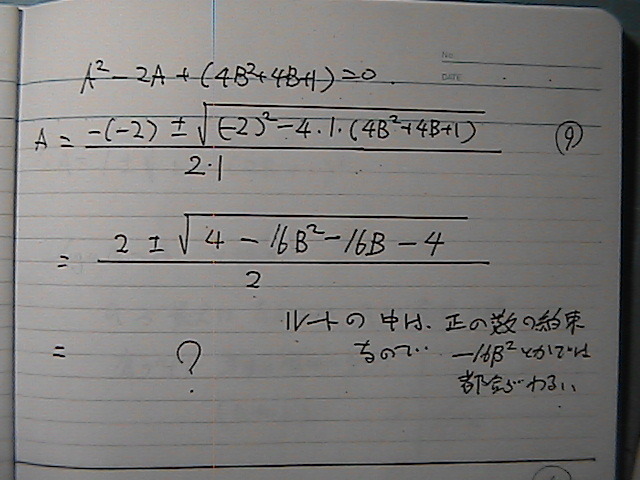 No.
DATE
A²-2A+(4B²+4B+1)=0.
A = \frac{-(-2) ± \sqrt{(-2)²-4・1・(4B²+4B+1)}}{2・1} ⑨
= \frac{2 ± \sqrt{4-16B²-16B-4}}{2}
ルートの中は、正の数の約束
= ?
なので‥ -16B²とかでは
都合がわるい